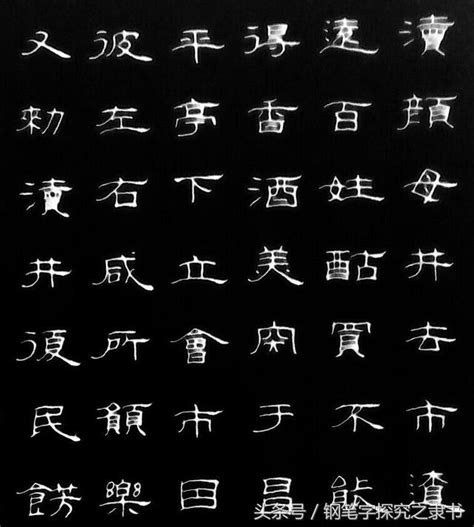 瀆顏母井去市遼
遠百姓酤買不能
得香酒美肉于昌
平亭下立會市因
彼左右咸所願樂
又勑瀆井復民餝
头条号 / 钢笔字探究之隶书